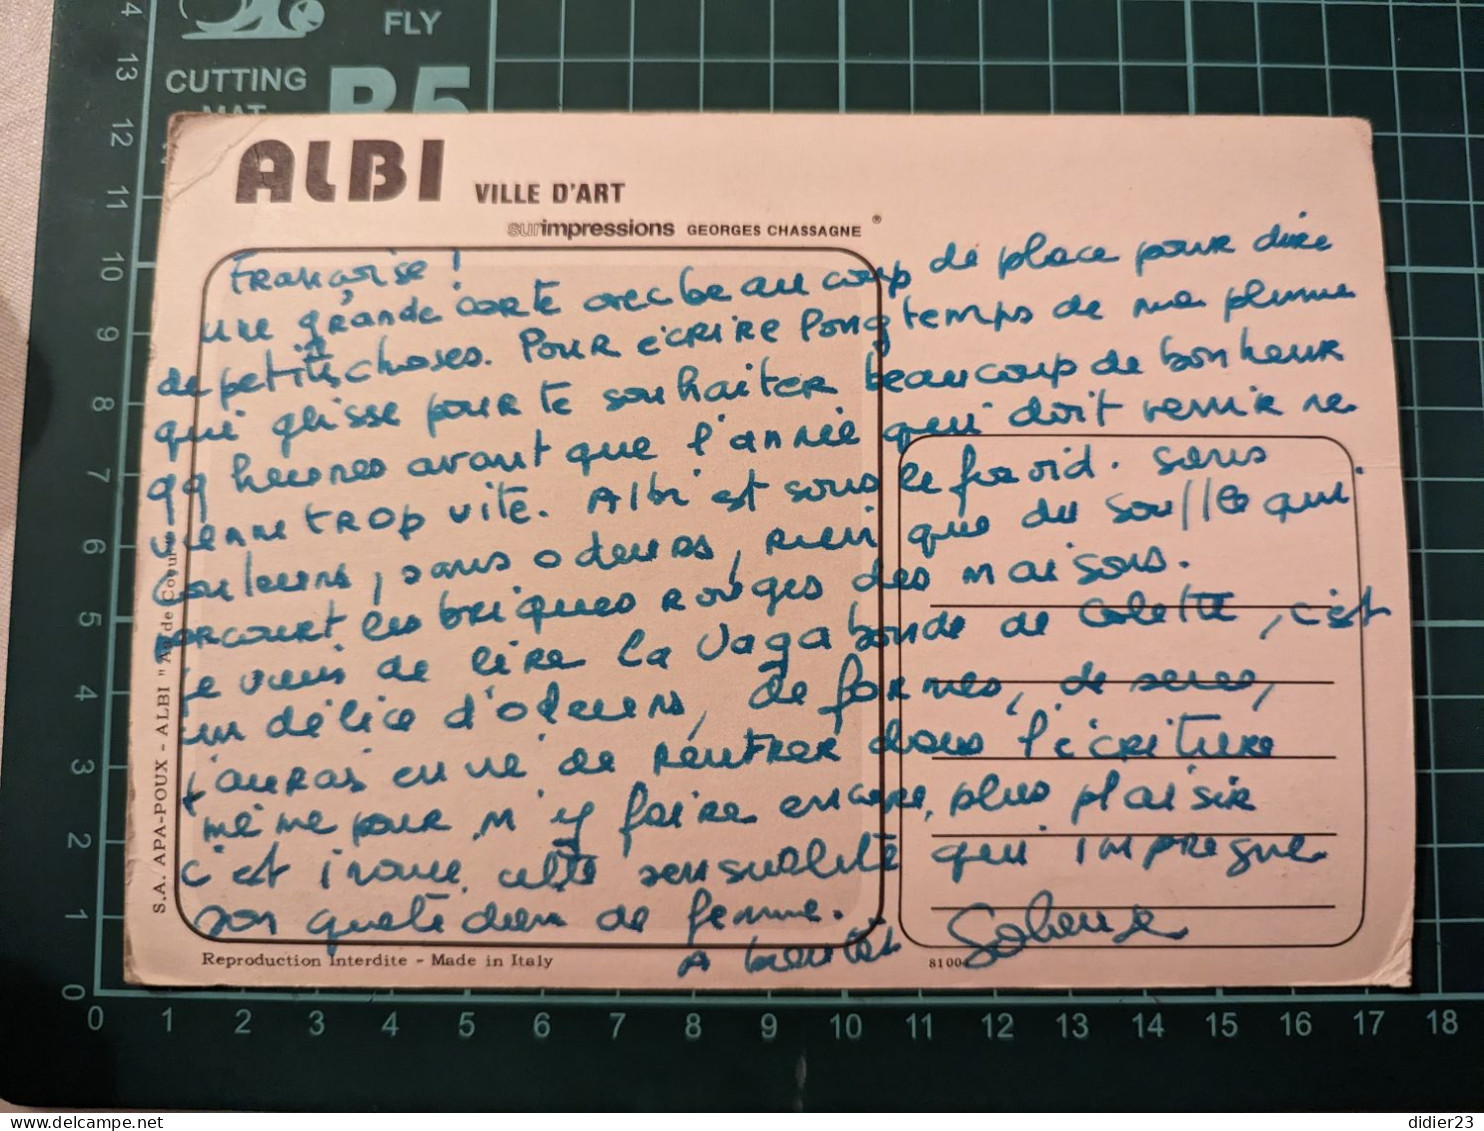 FLY
CUTTING
MAT B5
ALBI VILLE D'ART
surimpressions GEORGES CHASSAGNE ®
Françoise !
une grande carte avec beaucoup de place pour dire
de petites choses. Pour écrire longtemps de ma plume
qui glisse pour te souhaiter beaucoup de bonheur
qq heures avant que l'année qui doit venir ne
vienne trop vite. Albi est sous le froid. sans
couleurs, sans odeurs, rien que du souffle qui
parcourt les briques rouges des maisons.
je viens de lire la Vagabonde de Colette, c'est
un délice d'odeurs, de formes, de sens,
j'aurais envie de rentrer dans l'écriture
même pour m'y faire encore plus plaisir
c'est inouïe cette sensualité qui imprègne
son quotidien de femme.
A bientôt
S.A. APA-POUX - ALBI "As de Cœur"
Reproduction Interdite - Made in Italy
81004
14
13
12
11
10
9
8
7
6
5
4
3
2
1
0
0 1 2 3 4 5 6 7 8 9 10 11 12 13 14 15 16 17 18
didier23